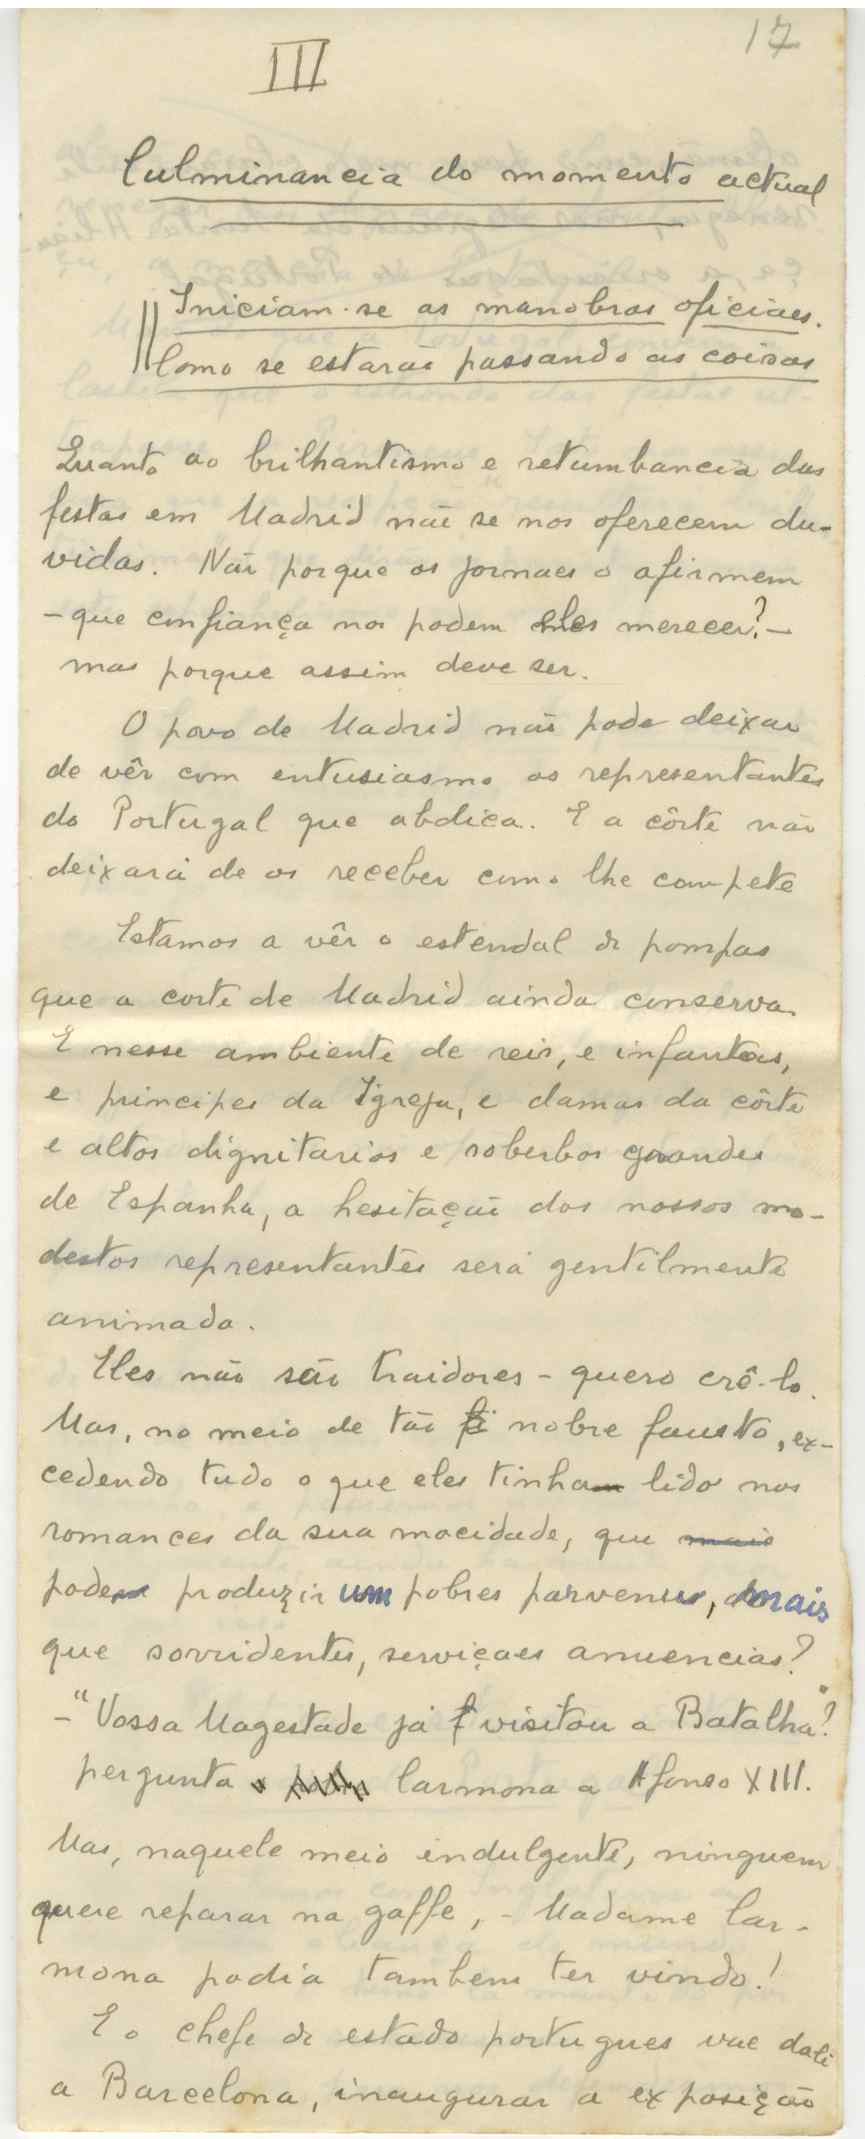 17
III
Culminancia do momento actual
Iniciam-se as manobras oficiaes.
Como se estarão passando as coisas
Quanto ao brilhantismo e retumbancia das
festas em Madrid não se nos oferecem du-
vidas. Não porque os jornaes o afirmem
- que confiança nos podem eles merecer? -
mas porque assim deve ser.
O povo de Madrid não pode deixar
de vêr com entusiasmo os representantes
do Portugal que abdica. E a côrte não
deixará de os receber como lhe compete
Estamos a vêr o estendal de pompas
que a corte de Madrid ainda conserva.
E nesse ambiente de reis, e infantas,
e principes da Igreja, e damas da côrte
e altos dignitarios e soberbos grandes
de Espanha, a hesitação dos nossos mo-
destos representantes será gentilmente
animada.
Eles não são traidores - quero crê-lo.
Mas, no meio de tão nobre fausto, ex-
cedendo tudo o que eles tinham lido nos
romances da sua mocidade, que mais
podem produzir um pobres parvenus, mais
que sorridentes, serviçaes anuencias?
- "Vossa Magestade já visitou a Batalha"?
pergunta o Carmona a Afonso XIII.
Mas, naquele meio indulgente, ninguem
quere reparar na gaffe, - Madame Car-
mona podia tambem ter vindo!
E o chefe de estado portugues vae dali
a Barcelona, inaugurar a exposição